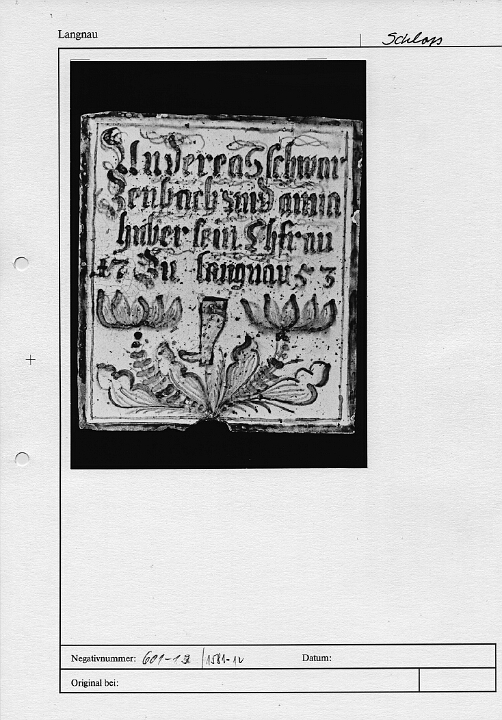 Langnau
Schloss
Andereas schwar
zenbach und anna
huber sein Ehfrau
17 Zu langnau 53
Negativnummer: 601-12 / 1581-12
Datum:
Original bei: